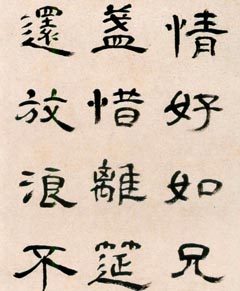 情好如兄
盞惜離筵
還放浪不